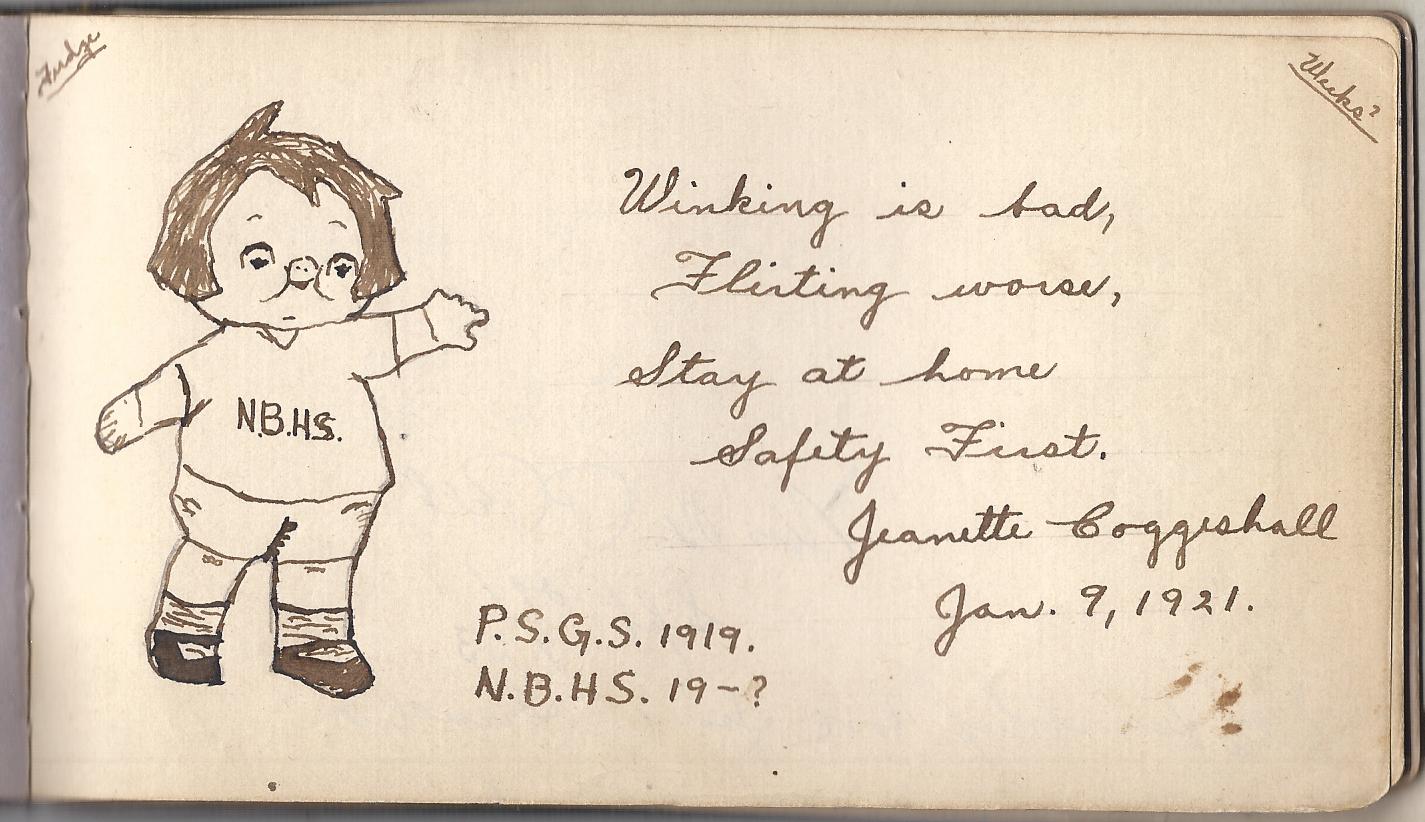 Fudge
Weeks?
Winking is bad,
Flirting worse,
Stay at home
Safety First.
Jeanette Coggeshall
Jan. 9, 1921.
N.B.H.S.
P.S.G.S. 1919.
N.B.H.S. 19-?